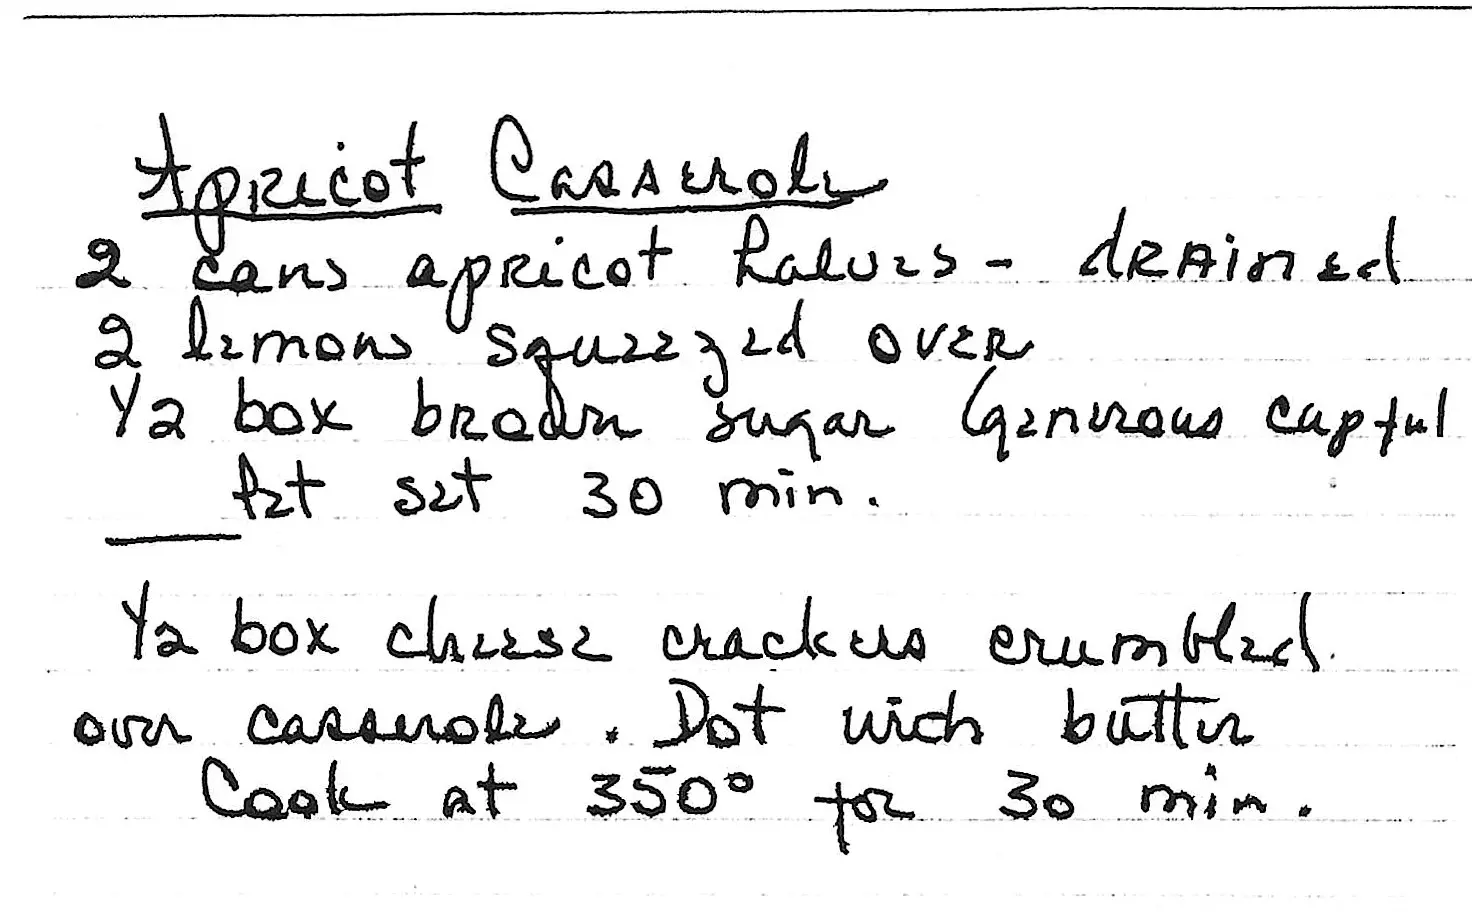 Apricot Casserole
2 cans apricot halves - drained
2 lemons squeezed over
1/2 box brown sugar (generous cupful
let set 30 min.
1/2 box cheese crackers crumbled
over casserole. Dot with butter
Cook at 350° for 30 min.